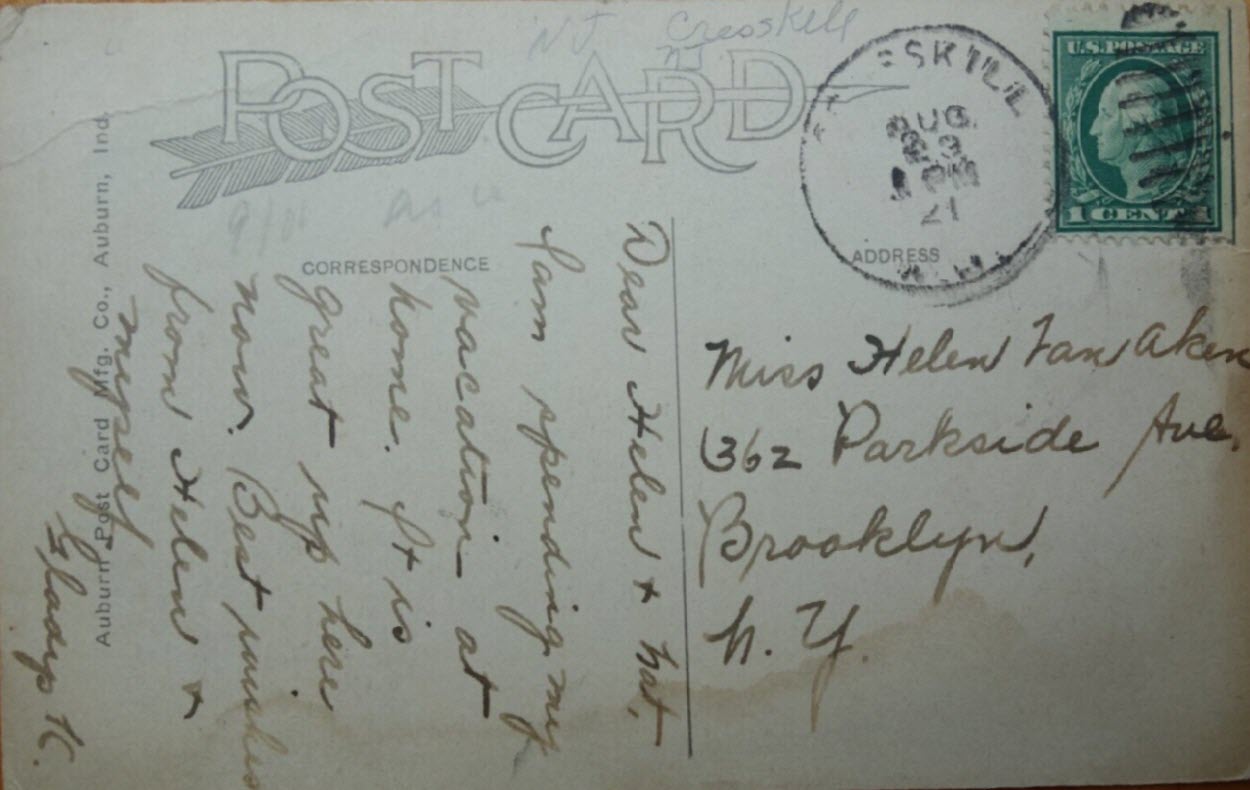 NJ Cresskill
POST CARD
U.S. POSTAGE
1 CENT 1
ESKILL
AUG
23
1 PM
21
CORRESPONDENCE
ADDRESS
Auburn Post Card Mfg. Co., Auburn, Ind.
Dear Helen + Nat,
I am spending my
vacation at
home. It is
great up here
now. Best wishes
from Helen +
myself
Gladys K.
Miss Helen Van Aken
362 Parkside Ave.
Brooklyn,
N. Y.